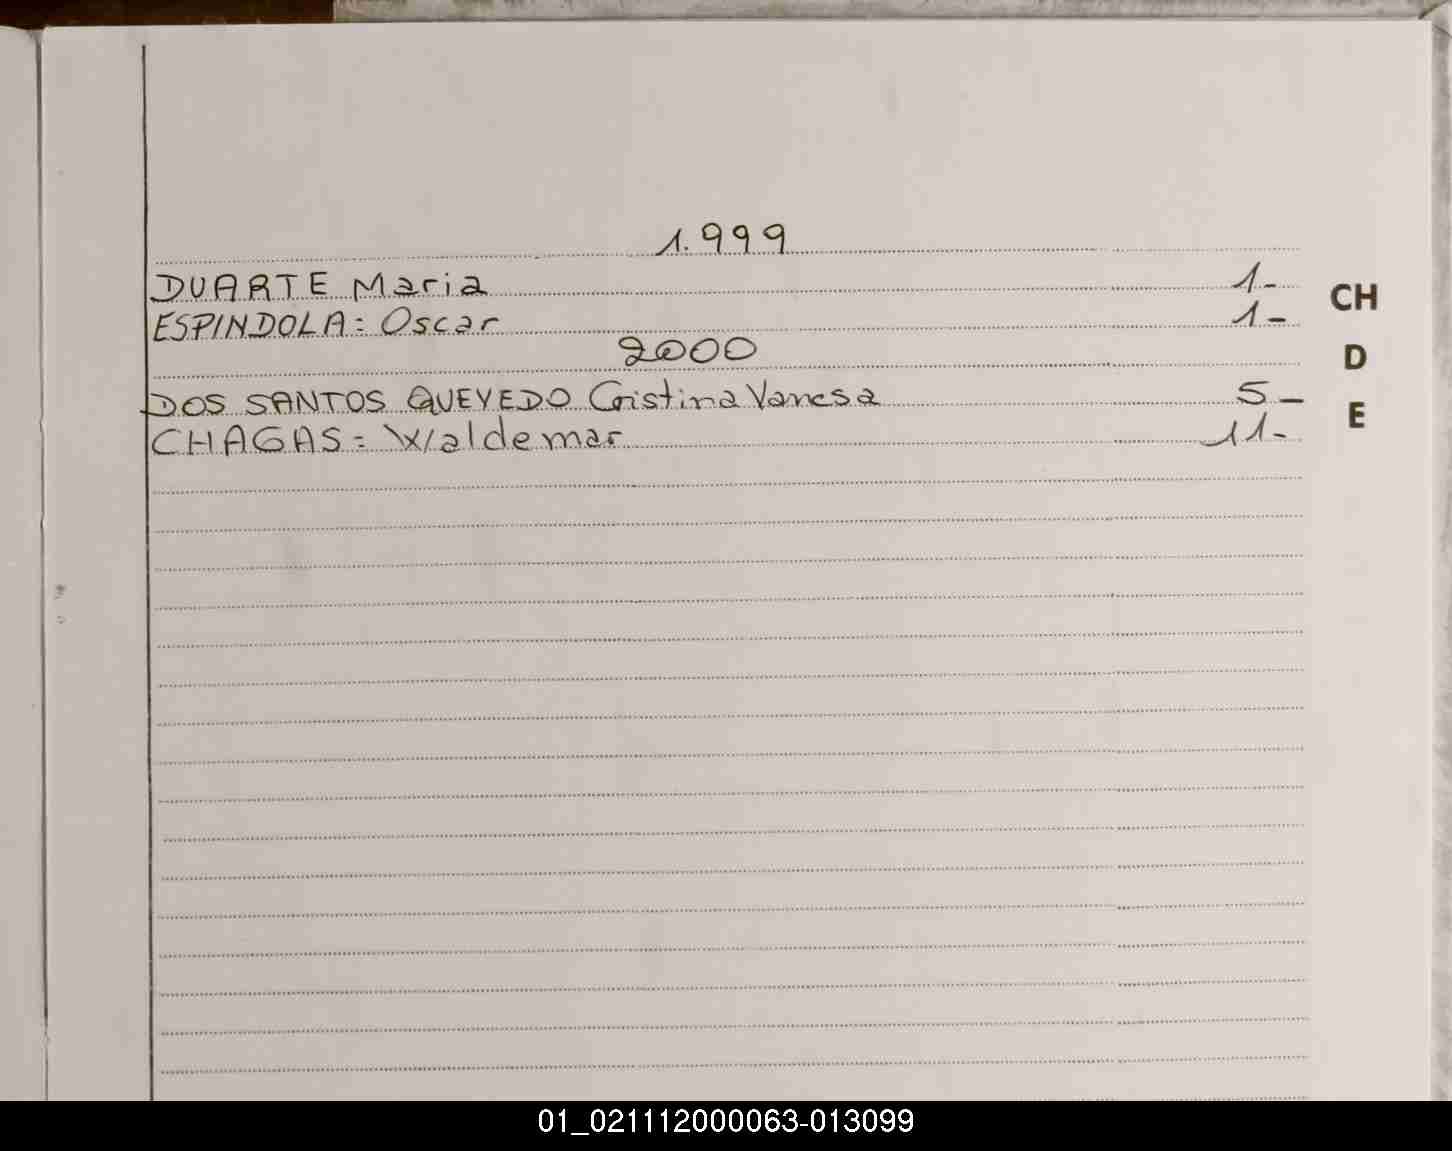 1.999
DUARTE Maria 1-
ESPINDOLA: Oscar 1-
2000
DOS SANTOS QUEVEDO Cristina Vanesa 5-
CHAGAS: Waldemar 11-
CH
D
E
01_021112000063-013099